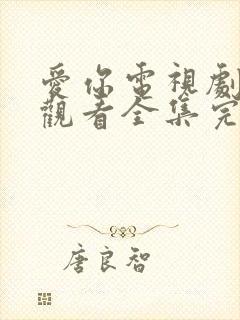 愛你電視劇
觀看全集完
唐良智